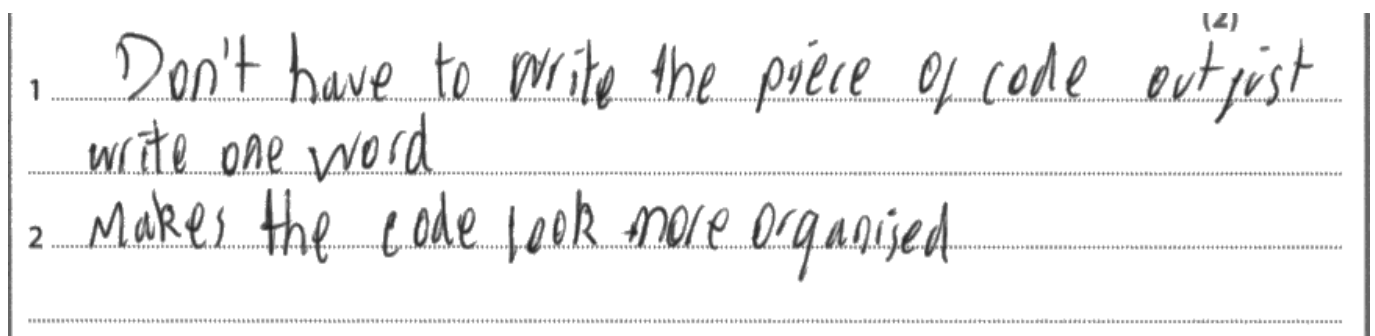 (2)
1 Don't have to write the piece of code out just
write one word
2 Makes the code look more organised